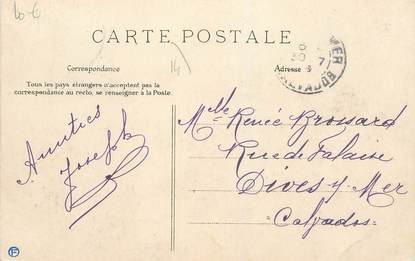 10 €
CARTE POSTALE
14
Correspondance
Adresse
Tous les pays étrangers n'acceptent pas la
correspondance au recto, se renseigner à la Poste.
Amitiés
Joseph
Mlle Renée Broisard
Rue de Falaise
Dives s/ Mer
Calvados
MER
CALVADOS